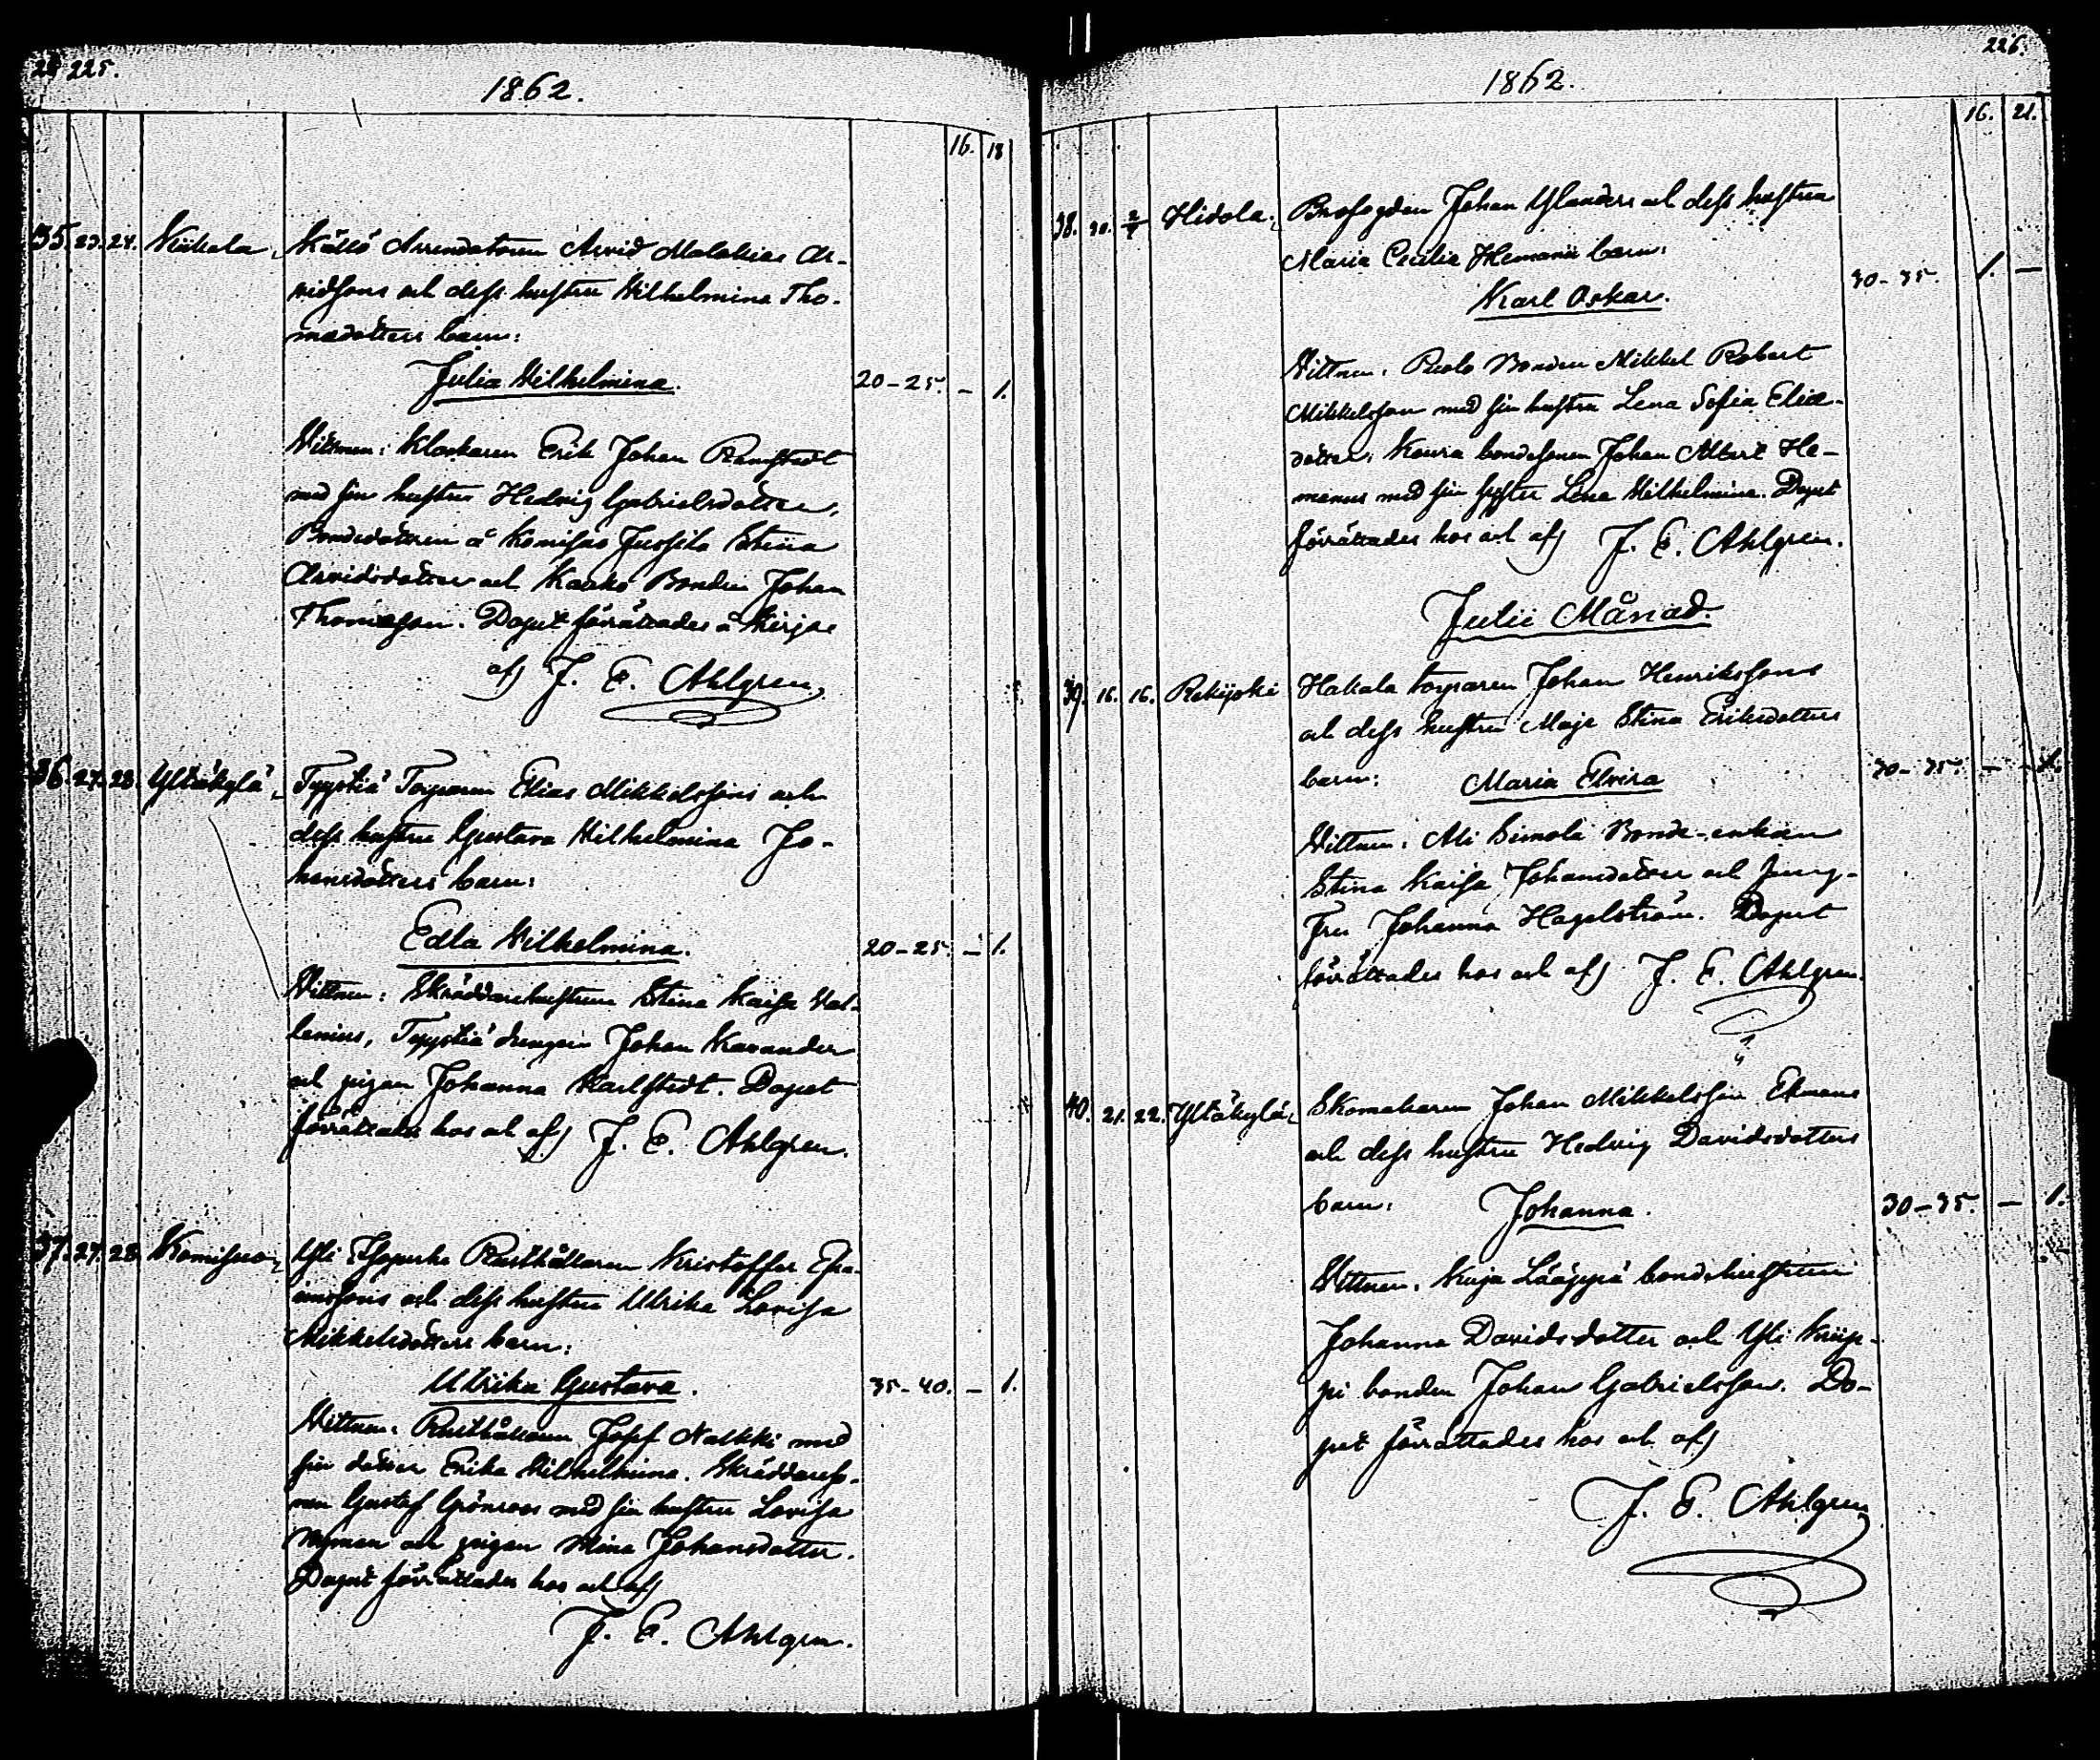 225.
1862.
16. 18
35. 23. 24. Niikala, Källö Arrendatorn Arvid Malakias Ar-
vidssons och dess hustru Wilhelmina Tho-
madotters barn:
Julia Wilhelmina. 20-25. - 1.
Vittnen: Klockaren Erik Johan Ramstedt
med sin hustru Hedvig Gabrielsdotter,
Bondedottren å Komisuo Jussila Stina
Arvidsdotter och Kaukо Bonden Johan
Thomasson. Dopet förrättades å Kirjos
af J. E. Ahlgren
36. 27. 28. Yltäkylä, Tyystiä Torparen Elias Mikkelssons och
dess hustru Gustava Wilhelmina Jo-
hansdotters barn:
Edla Wilhelmina. 20-25. - 1.
Vittnen: Skräddarehustrun Stina Kaisa Val-
lenius, Tyystiä drengen Johan Kavander
och pigan Johanna Karlstedt. Dopet
förrättades hos och af J. E. Ahlgren.
37. 27. 28. Komisuo, Yli Rusthållaren Kristoffer Esa-
iassons och dess hustru Ulrika Lovisa
Mikkelsdotters barn:
Ulrika Gustava. 35-40. - 1.
Vittnen: Rusthållaren Josef Nalkki med
sin dotter Erika Wilhelmina. Skräddareso-
nen Gustaf Grönroos med sin hustru Lovisa
Nyman och pigan Mina Johansdotter.
Dopet förrättades hos och af
J. E. Ahlgren.
226.
1862.
16. 21.
38. 30. 2/7 Hidola, Brofogden Johan Ylanders och dess hustru
Maria Cecilia Hemanii barn:
Karl Oskar. 30-35. 1. -
Vittnen: Ruolo Bonden Mikkel Robert
Mikkelsson med sin hustru Lena Sofia Elia-
dotter, Koura bondesonen Johan Albert He-
manus med sin syster Lena Wilhelmina. Dopet
förrättades hos och af J. E. Ahlgren.
Julii Månad.
39. 16. 16. Rekijoki Hakala torparen Johan Henrikssons
och dess hustru Maja Stina Eriksdotters
barn: Maria Elvira 30-35. - 1.
Vittnen: Ali Simola Bonde-enkan
Stina Kaisa Johansdotter och Jung-
fru Johanna Hagelström. Dopet
förrättades hos och af J. E. Ahlgren.
40. 21. 22. Yltäkylä, Skomakaren Johan Mikkelsson Ekmans
och dess hustru Hedvig Davidsdotters
barn: Johanna. 30-35. - 1.
Vittnen: Kuja Lääppä bondehustrun
Johanna Davidsdotter och Yli Knüp-
pi bonden Johan Gabrielsson. Do-
pet förrättades hos och af
J. E. Ahlgren